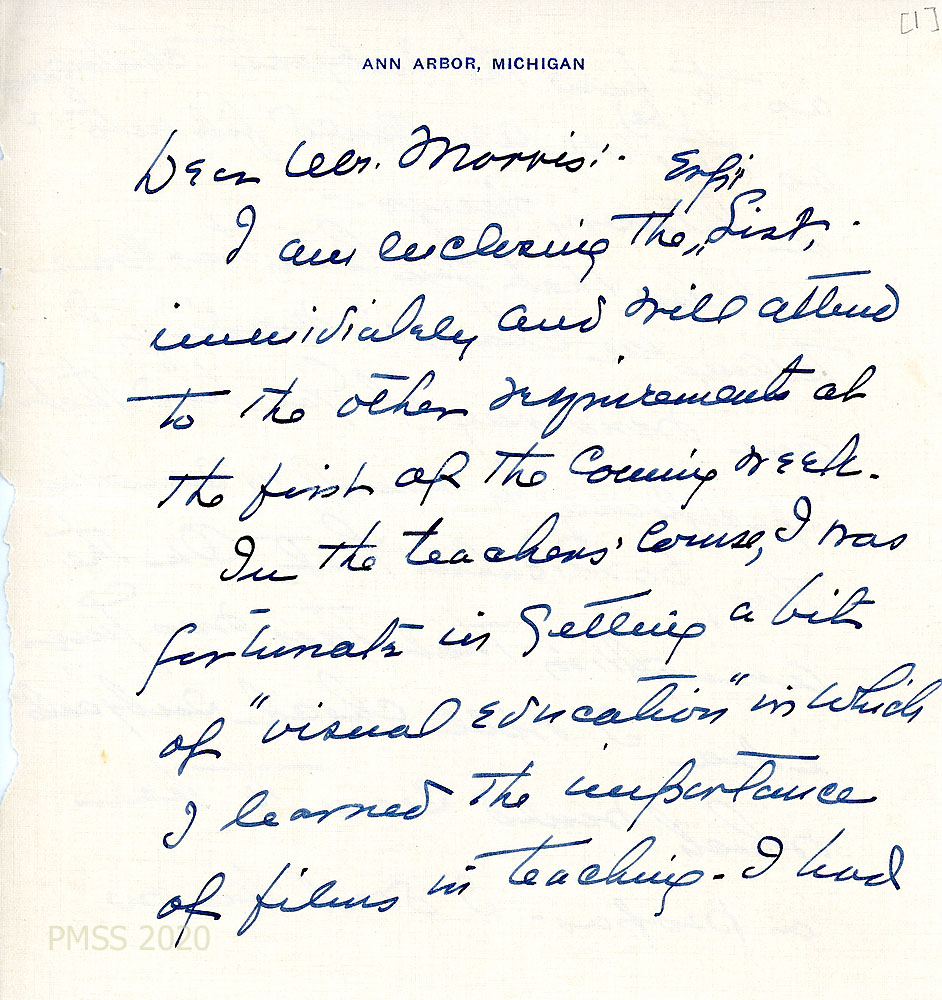 [1]
ANN ARBOR, MICHIGAN
Dear Mr. Morris:
I am enclosing the "List,
immidiately and will attend
to the other requirements at
the first of the Coming week.
In the teachers' course, I was
fortunate in getting a bit
of "visual education" in which
I learned the importance
of films in teaching. I had
PMSS 2020